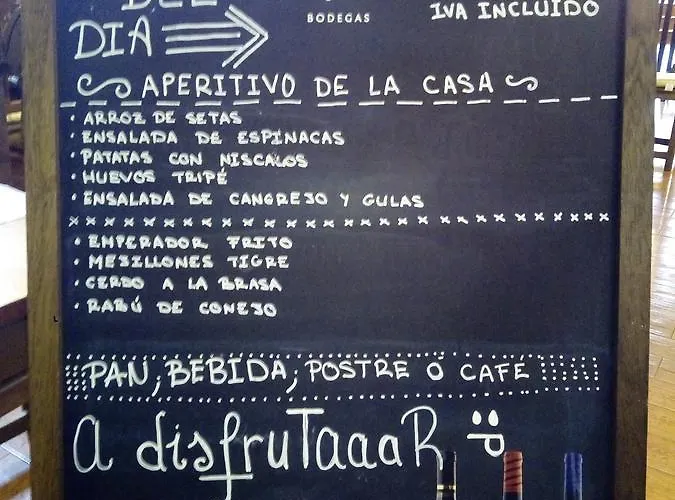 DEL
BODEGAS
IVA INCLUIDO
DIA
APERITIVO DE LA CASA
· ARROZ DE SETAS
· ENSALADA DE ESPINACAS
· PATATAS CON NISCALOS
· HUEVOS TRIPÉ
· ENSALADA DE CANGREJO Y GULAS
· EMPERADOR FRITO
· MEJILLONES TIGRE
· CERDO A LA BRASA
· RABÚ DE CONEJO
PAN, BEBIDA, POSTRE Ó CAFÉ
A disfruTaaaR :P